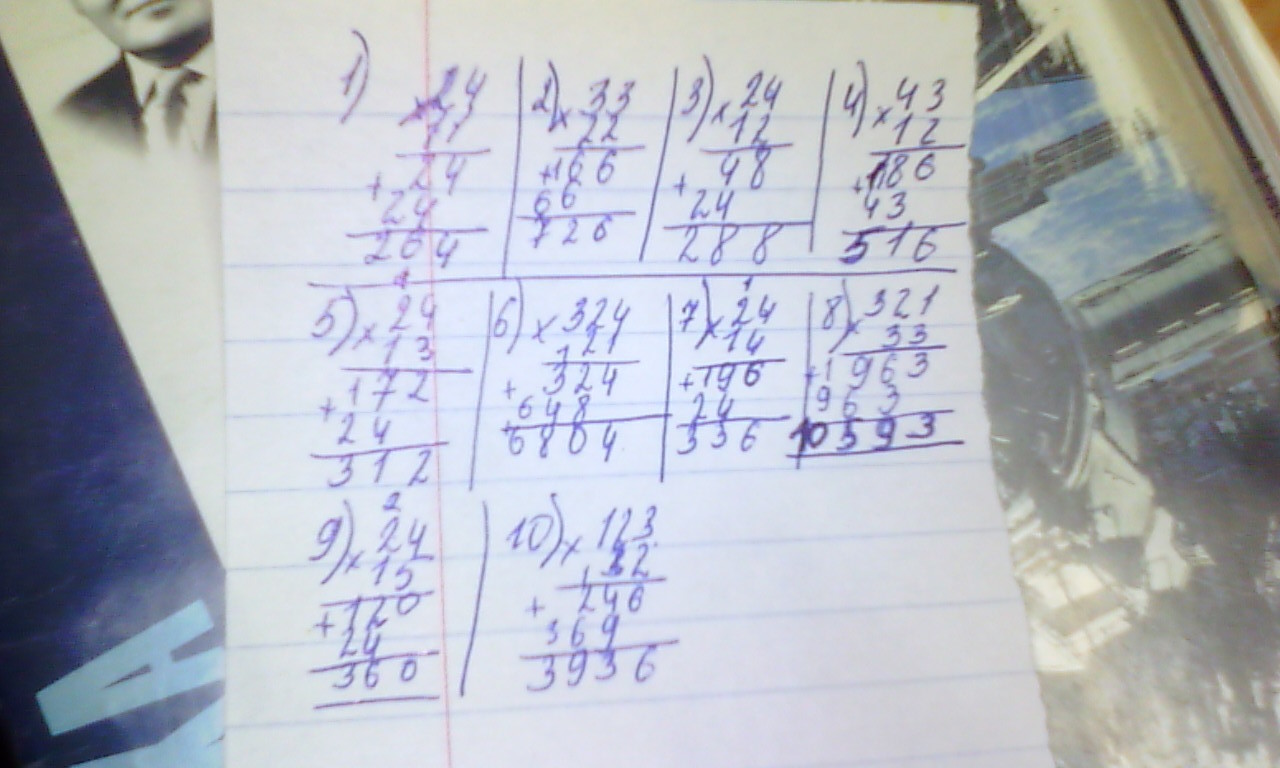 1) 24
× 11
24
+ 24
264
2) 33
× 22
+ 166
66
726
3) 24
× 12
+ 48
24
288
4) 43
× 12
+ 186
43
516
1
5) 24
× 13
+ 172
24
312
6) 324
× 21
1
+ 324
648
6804
1
7) 24
× 14
+ 196
24
336
8) 321
× 33
+ 1963
963
10593
2
9) 24
× 15
+ 120
24
360
10) 123
× 32
1
+ 246
369
3936